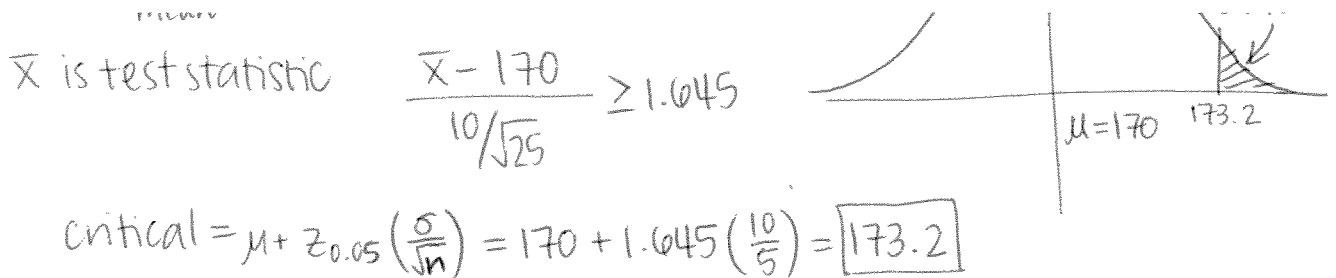 x̄ is test statistic (x̄ - 170)/(10/√25) ≥ 1.645
μ=170 173.2
critical = μ + z_0.05 (σ/√n) = 170 + 1.645 (10/5) = 173.2